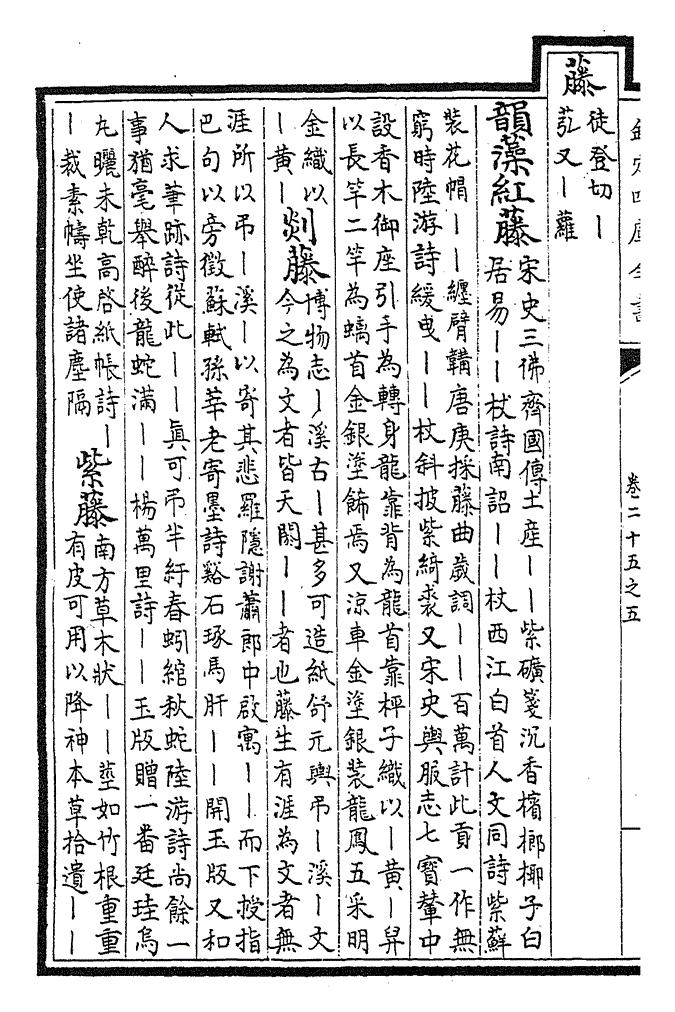 欽定四庫全書
卷二十五之五
一
藤
徒登切丨
苰又丨蘿
韻藻紅藤
宋史三佛齊國傳土産丨丨紫礦箋沉香檳榔椰子白
居易丨丨杖詩南詔丨丨杖西江白首人文同詩紫蘚
裝花帽丨丨纏臂韝唐庚採藤曲歲調丨丨百萬計此貢一作無
窮時陸游詩緩曳丨丨杖斜披紫綺裘又宋史輿服志七寶輦中
設香木御座引手為轉身龍靠背為龍首靠枰子織以丨黃丨舁
以長竿二竿為螭首金銀塗飾焉又涼車金塗銀裝龍鳳五采明
金織以
丨黃丨
剡藤
博物志丨溪古丨甚多可造紙舒元輿弔丨溪丨文
今之為文者皆天閼丨丨者也藤生有涯為文者無
涯所以弔丨溪丨以寄其悲羅隱謝蕭郎中啟寓丨丨而下授指
巴句以旁徵蘇軾孫莘老寄墨詩谿石琢馬肝丨丨開玉版又和
人求筆跡詩從此丨丨眞可弔半紆春蚓綰秋蛇陸游詩尚餘一
事猶毫舉醉後龍蛇滿丨丨楊萬里詩丨丨玉版贈一番廷珪烏
丸曬未乾高啓紙帳詩丨
丨裁素幬坐使諸塵隔
紫藤
南方草木狀丨丨莖如竹根重重
有皮可用以降神本草拾遺丨丨